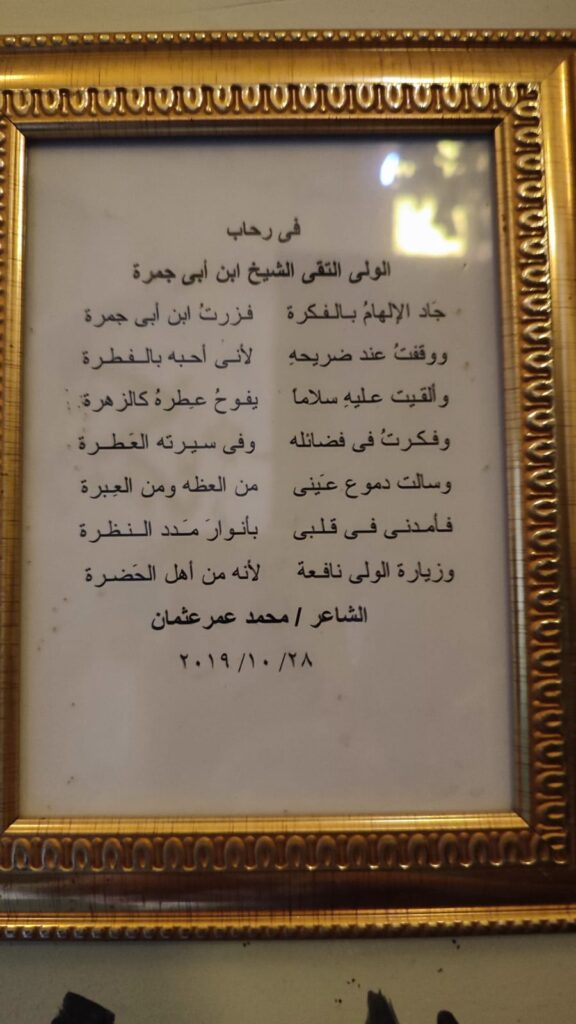 فى رحاب
الولى التقى الشيخ ابن أبى جمرة
جَاد الإلهامُ بالفكرة فزرتُ ابن أبى جمرة
ووقفتُ عند ضريحهِ لأنى أحبه بالفطرة
وألقيت عليهِ سلاماً يفوحُ عطرهُ كالزهرة
وفكرتُ فى فضائله وفى سيرته العَطرة
وسالت دموع عَينى من العظه ومن العِبرة
فأمدنى فى قلبى بأنوارَ مَدد النظرة
وزيارة الولى نافعة لأنه من أهل الحَضرة
الشاعر / محمد عمر عثمان
٢٨/ ١٠/ ٢٠١٩